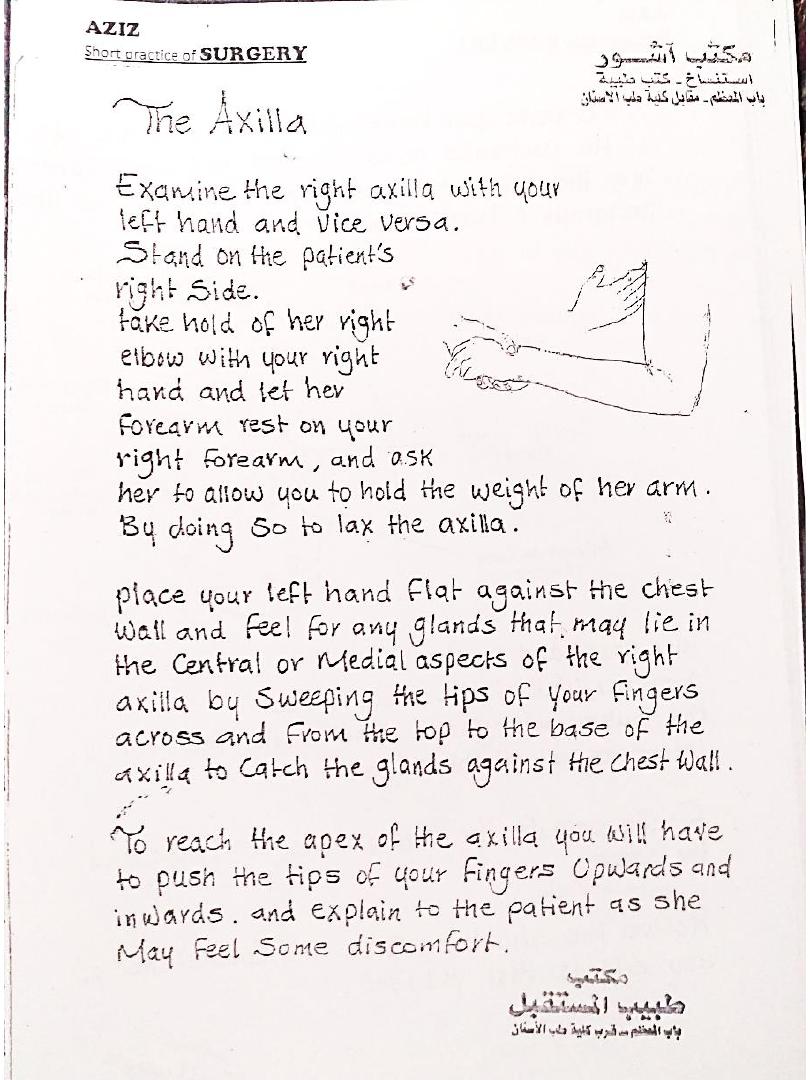 AZIZ
Short practice of SURGERY
مكتب آشور
استنساخ - كتب طبية
باب المعظم - مقابل كلية طب الاسنان
The Axilla
Examine the right axilla with your
left hand and vice versa.
Stand on the patient's
right Side.
take hold of her right
elbow with your right
hand and let her
forearm rest on your
right forearm, and ask
her to allow you to hold the weight of her arm.
By doing So to lax the axilla.
place your left hand flat against the chest
Wall and feel for any glands that may lie in
the Central or Medial aspects of the right
axilla by Sweeping the tips of Your fingers
across and from the top to the base of the
axilla to Catch the glands against the Chest Wall.
To reach the apex of the axilla you will have
to push the tips of your fingers Upwards and
inwards. and explain to the patient as she
May feel Some discomfort.
مكتب
طبيب المستقبل
باب المعظم - قرب كلية طب الأسنان